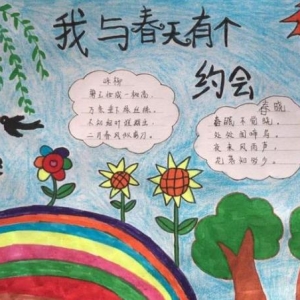 我与春天有个
约会
咏柳
碧玉妆成一树高,
万条垂下绿丝绦。
不知细叶谁裁出,
二月春风似剪刀。
春晓
春眠不觉晓,
处处闻啼鸟。
夜来风雨声,
花落知多少。